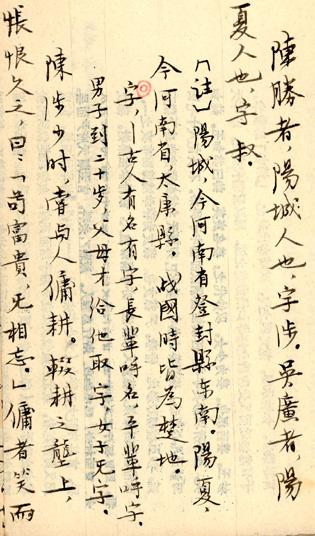 陳勝者，陽城人也，字涉。吳廣者，陽
夏人也，字叔。
【註】陽城，今河南省登封縣东南。陽夏，
今河南省太康縣。战國時皆為楚地。
字，—古人有名有字長輩呼名，平輩呼字。
男子到二十岁，父母才给他取字，女子无字。
陳涉少时，嘗与人傭耕。輟耕之壟上，
悵恨久之，曰：「苟富貴，无相忘。」傭者笑而